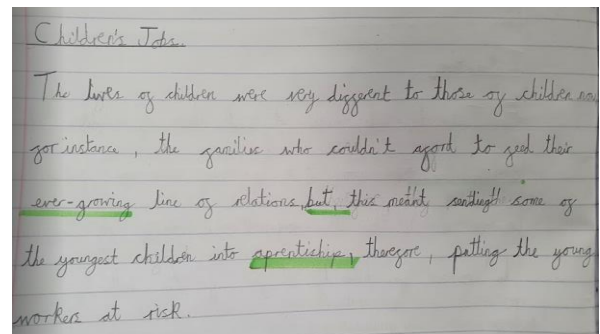 Children's Jobs.
The lives of children were very different to those of children now
for instance, the families who couldn't aford to feed their
ever-growing line of relations, but, this meant some of
the youngest children into aprentiship, therefore, putting the young
workers at risk.